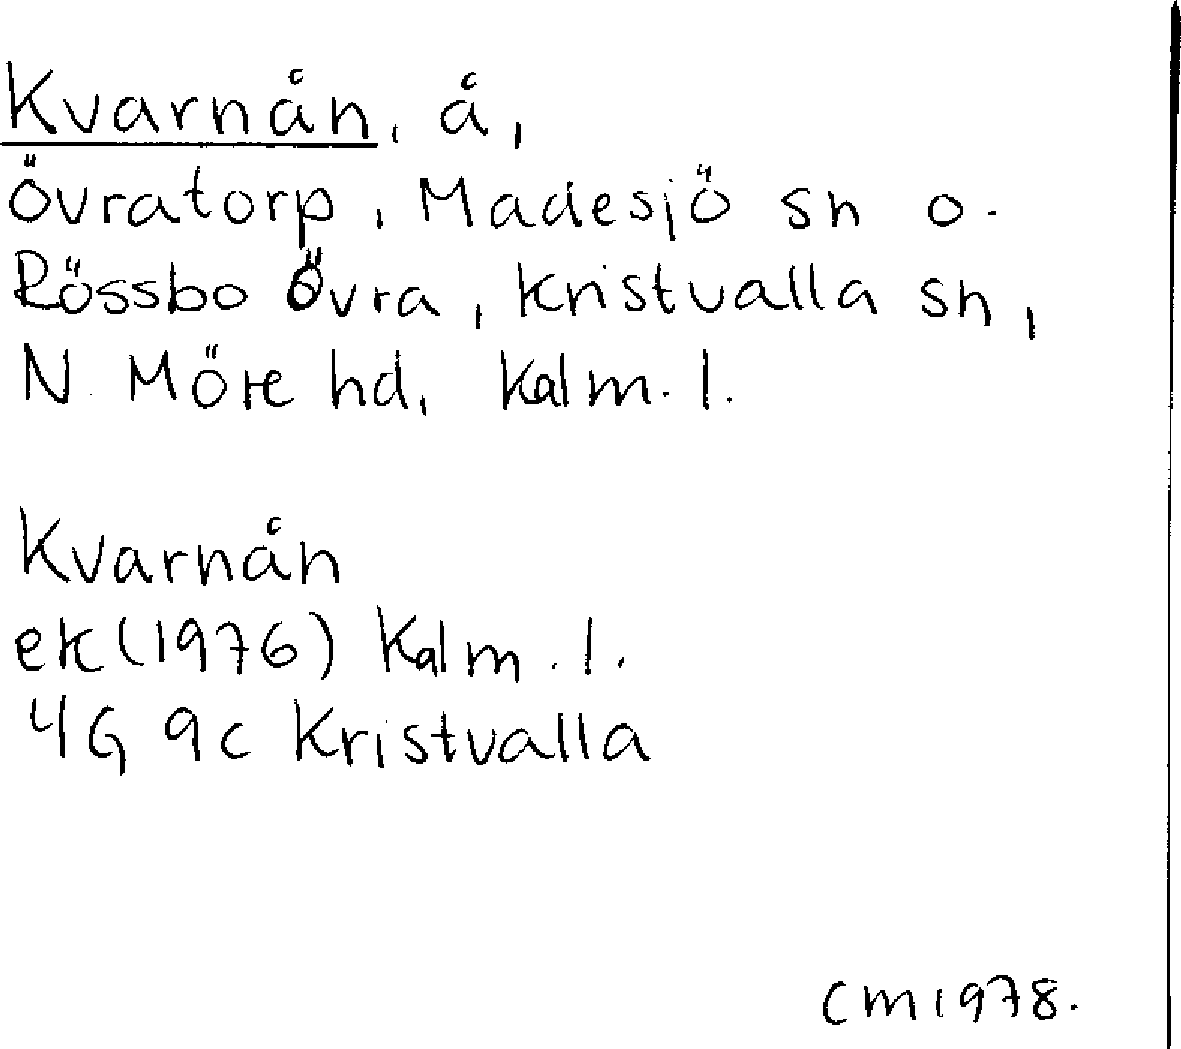 Kvarnån, å,
Övratorp, Madesjö sn o.
Rössbo Övra, Kristvalla sn,
N. Möre hd, Kalm. l.
Kvarnån
ek (1976) Kalm. l.
4G 9c Kristvalla
CM 1978.